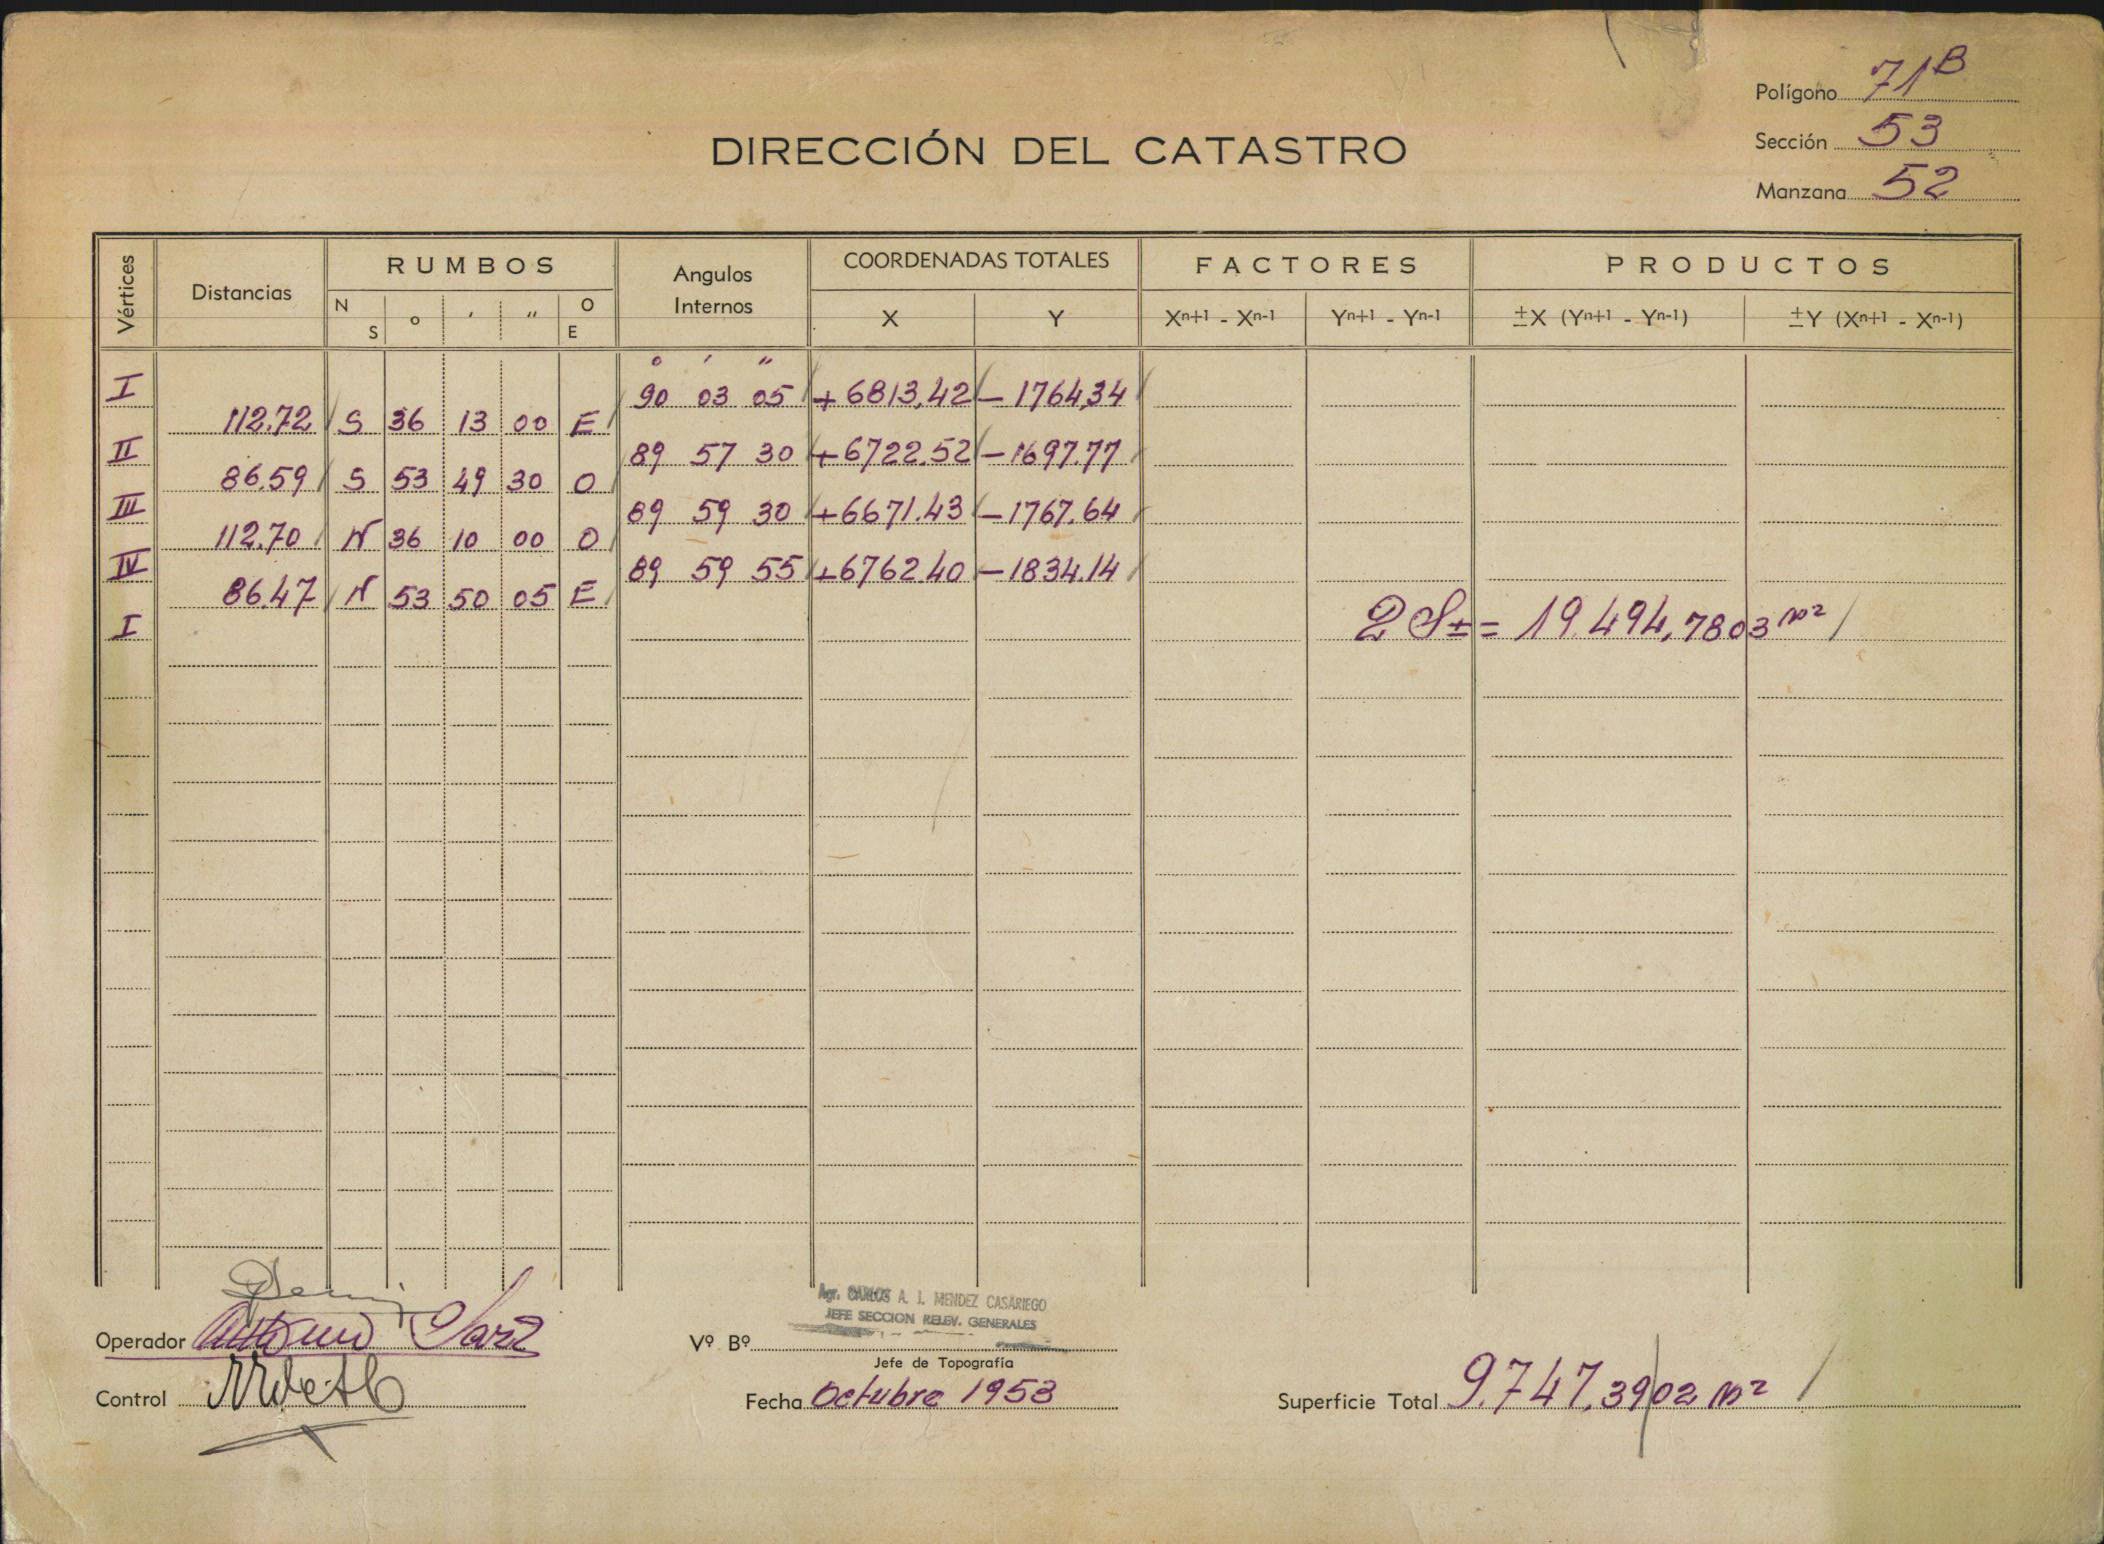 Polígono 71B
Sección 53
Manzana 52
DIRECCIÓN DEL CATASTRO
Vértices Distancias RUMBOS Angulos Internos COORDENADAS TOTALES FACTORES PRODUCTOS
N S ° ' " O E X Y Xn+1 - Xn-1 Yn+1 - Yn-1 ±X (Yn+1 - Yn-1) ±Y (Xn+1 - Xn-1)
° ' "
I 90 03 05 +6813,42 -1764,34
112.72 S 36 13 00 E
II 89 57 30 +6722.52 -1697.77
86.59 S 53 49 30 O
III 89 59 30 +6671.43 -1767.64
112.70 N 36 10 00 O
IV 89 59 55 +6762.40 -1834.14
86.47 N 53 50 05 E
I 2 S± = 19.494,7803 m2
Agr. CARLOS A. J. MENDEZ CASARIEGO
JEFE SECCION RELEV. GENERALES
Operador
Vº Bº
Jefe de Topografía
Control
Fecha Octubre 1953
Superficie Total 9.747,3902 m2